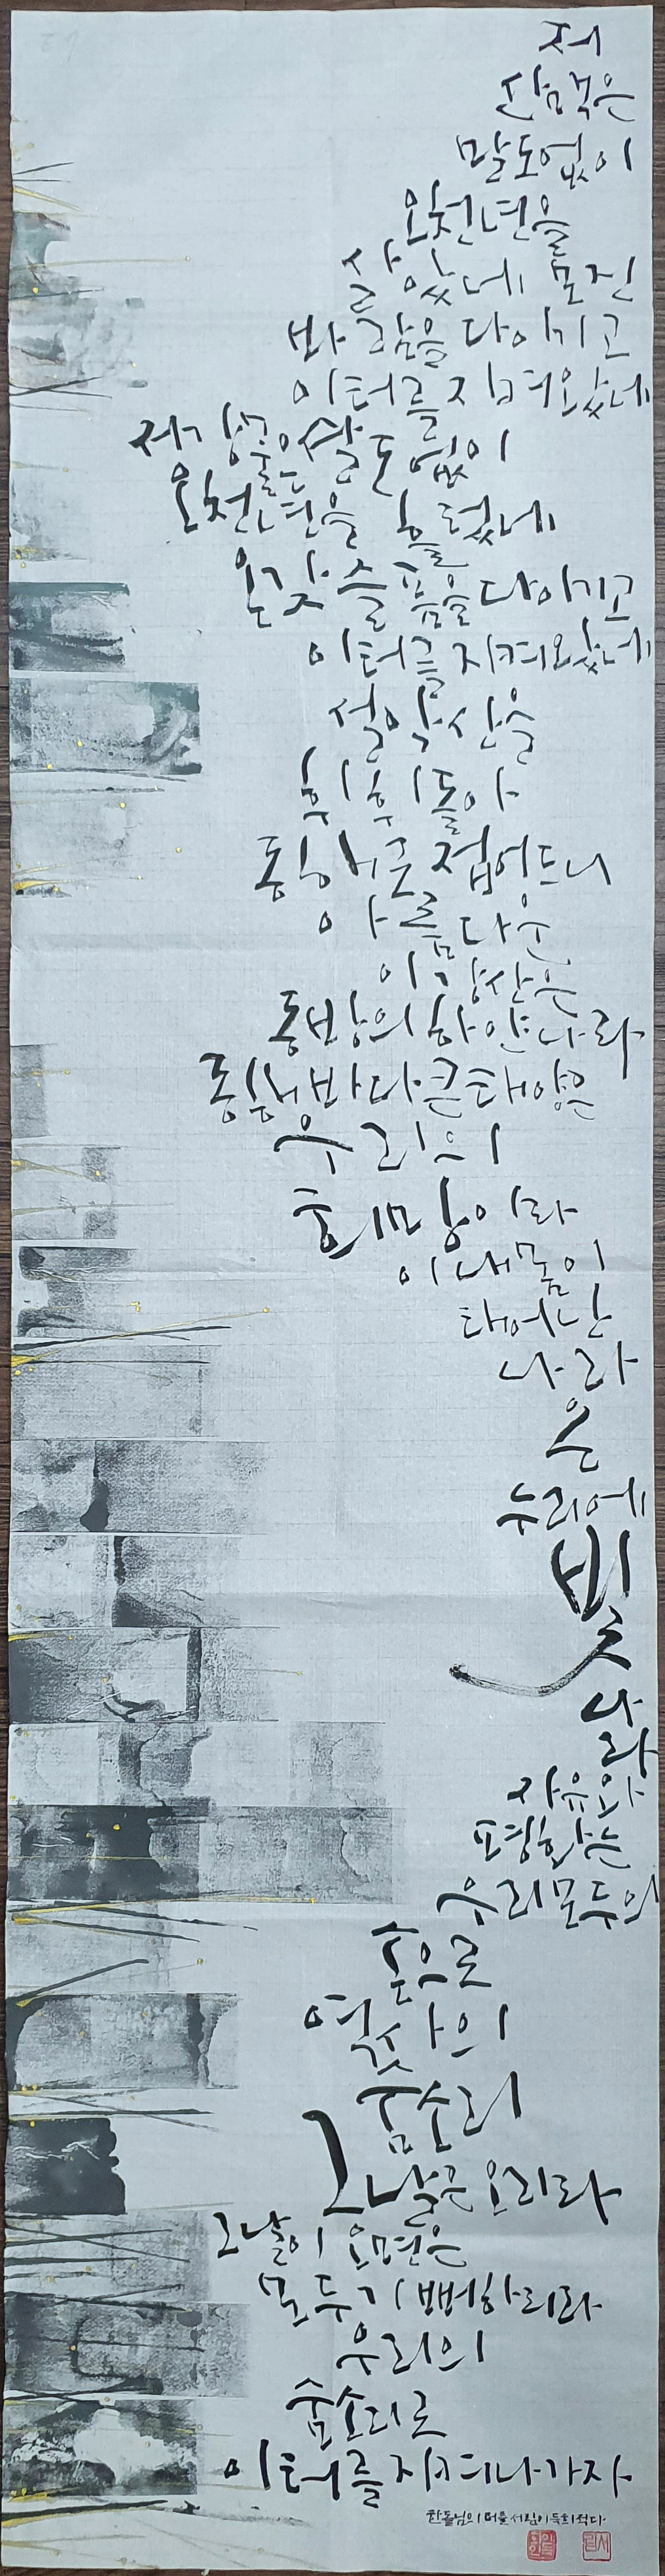 저
산맥은
말도없이
오천년을
살았네 모진
바람을 다이기고
이터를 지켜왔네
저강물은 말도없이
오천년을 흘렀네
온갖 슬픔을 다이기고
이터를 지켜왔네
설악산을
휘휘돌아
동해로 접어드니
아름다운
이강산은
동방의하얀나라
동해바다큰태양은
우리의
희망이라
이내몸이
태어난
나라
온
누리에
빛
나
라
자유와
평화는
우리모두의
손으로
역사의
숨소리
그날은 오리라
그날이 오면은
모두기뻐하리라
우리의
숨소리로
이터를 지켜나가자
한돌님의 터를 서림이득희적다